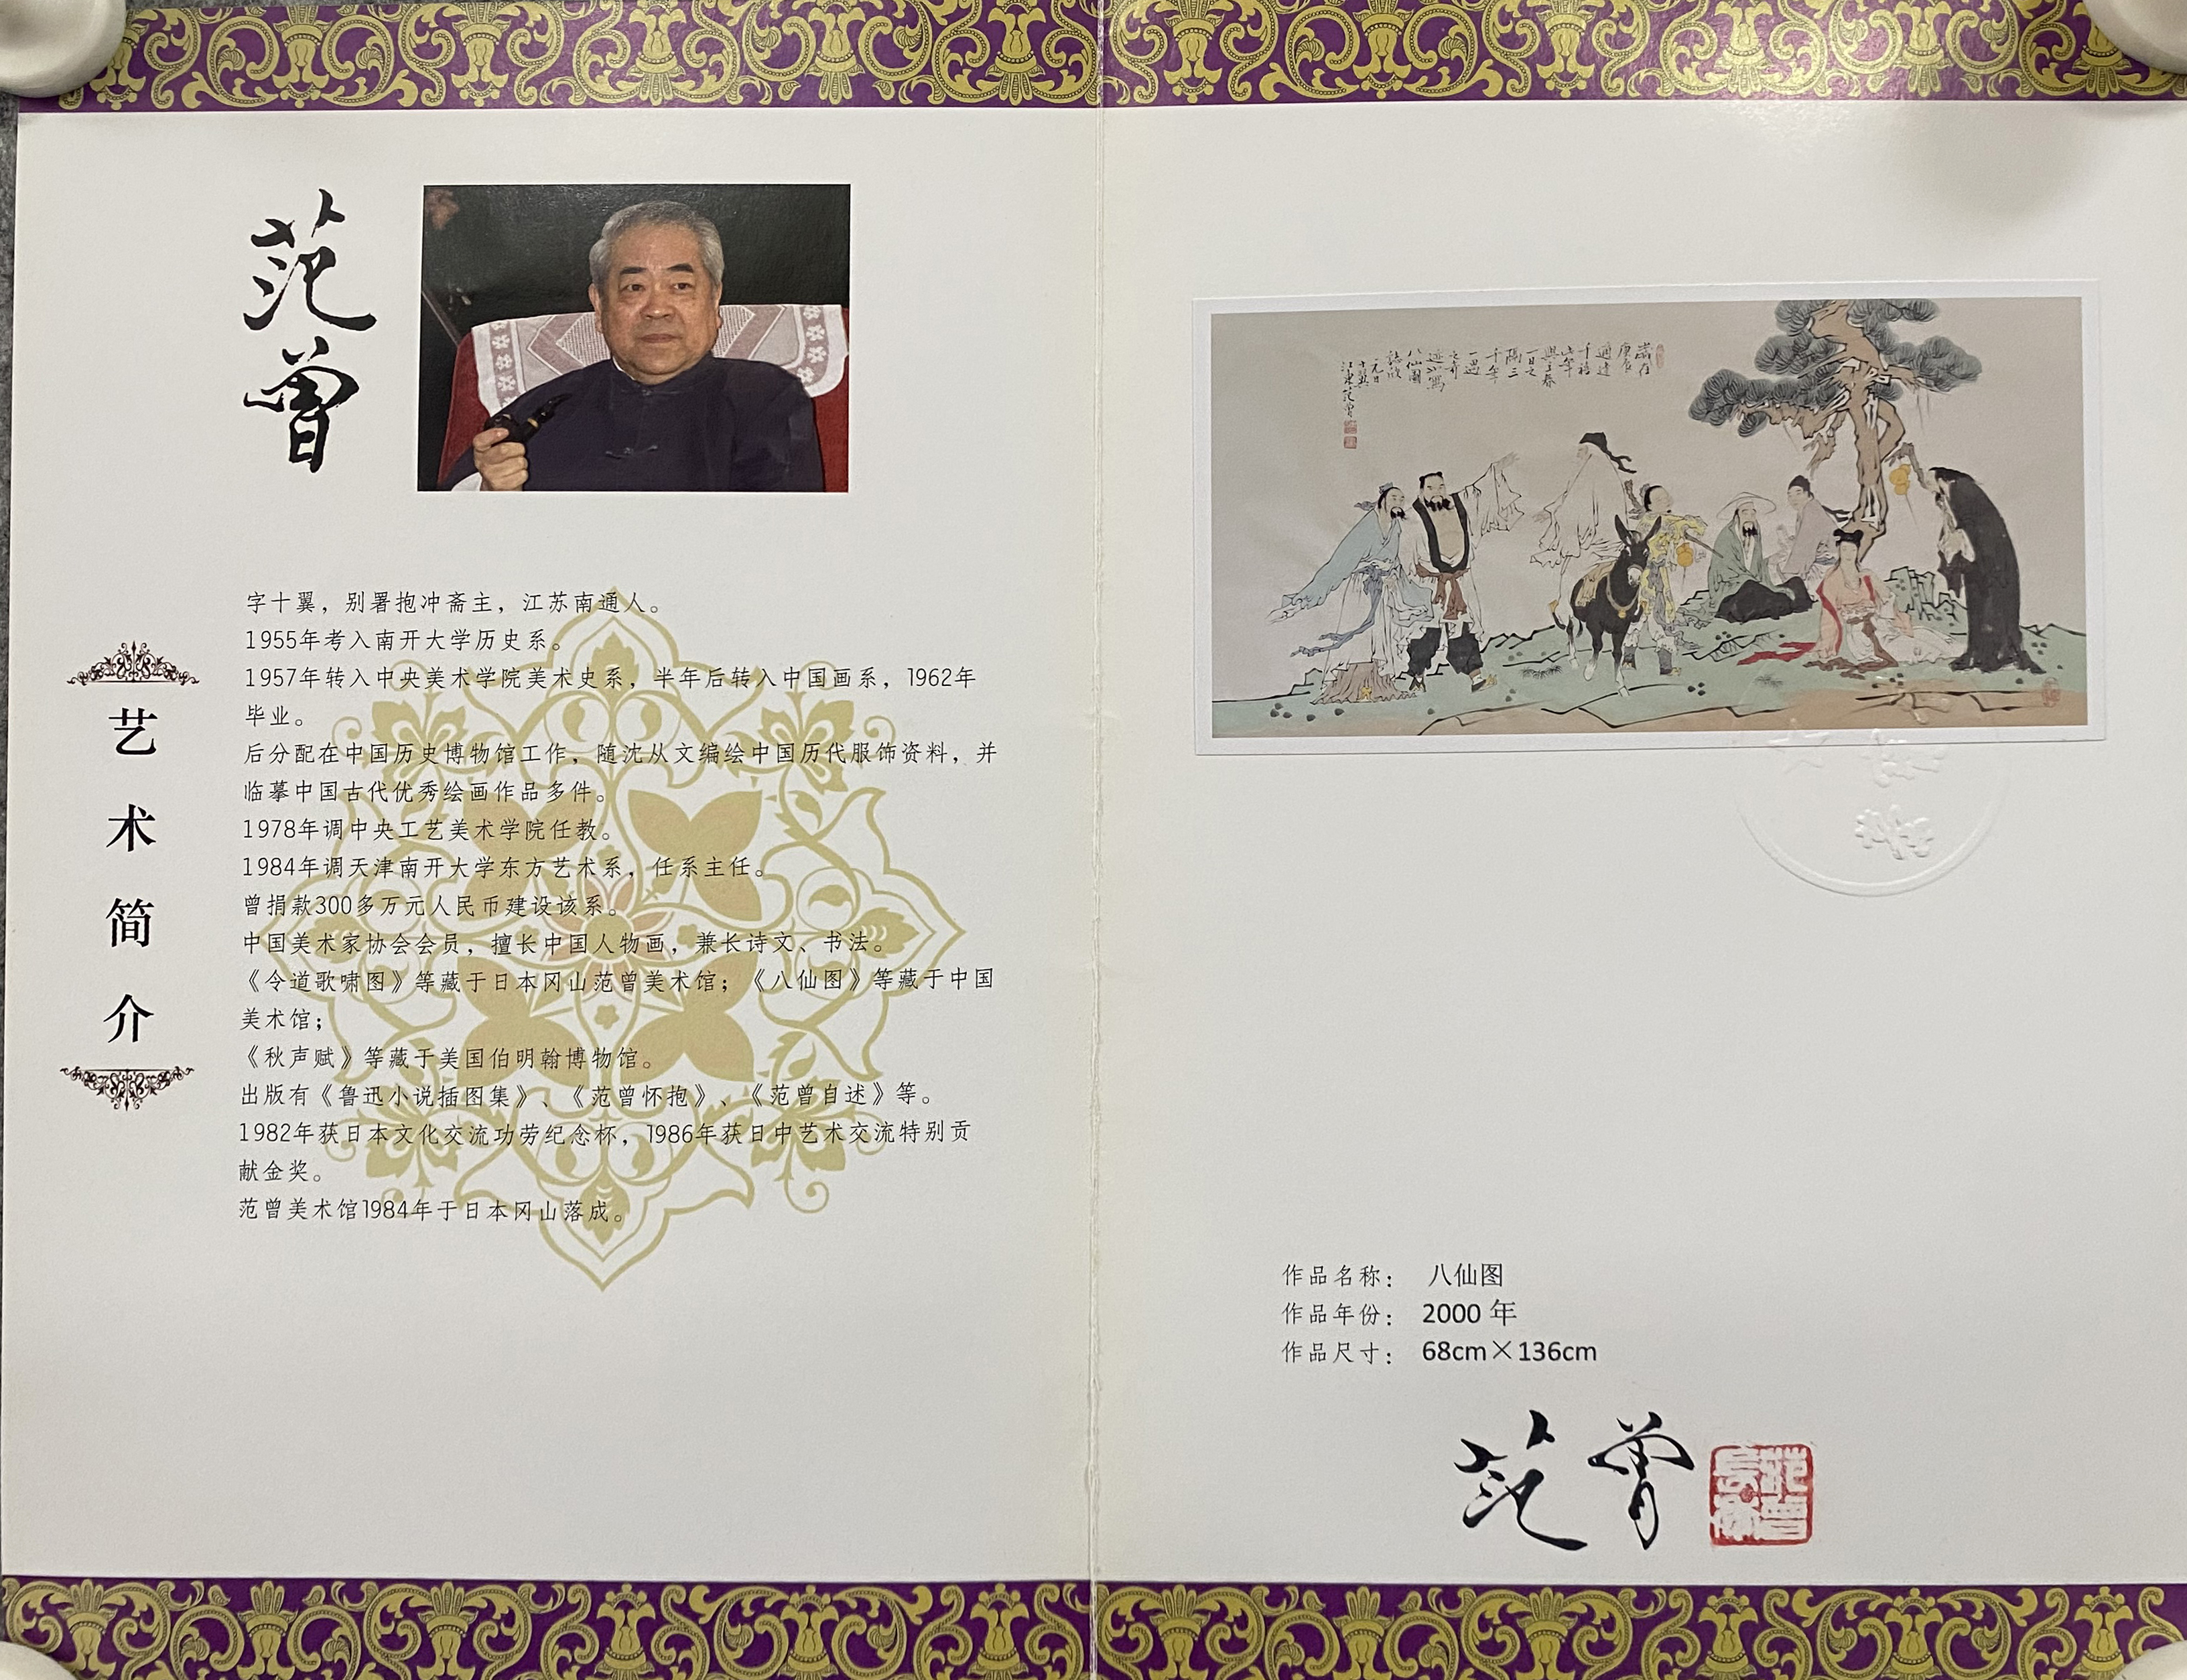 范曾
艺术简介
字十翼，别署抱冲斋主，江苏南通人。
1955年考入南开大学历史系。
1957年转入中央美术学院美术史系，半年后转入中国画系，1962年
毕业。
后分配在中国历史博物馆工作，随沈从文编绘中国历代服饰资料，并
临摹中国古代优秀绘画作品多件。
1978年调中央工艺美术学院任教。
1984年调天津南开大学东方艺术系，任系主任。
曾捐款300多万元人民币建设该系。
中国美术家协会会员，擅长中国人物画，兼长诗文、书法。
《令道歌啸图》等藏于日本冈山范曾美术馆；《八仙图》等藏于中国
美术馆；
《秋声赋》等藏于美国伯明翰博物馆。
出版有《鲁迅小说插图集》、《范曾怀抱》、《范曾自述》等。
1982年获日本文化交流功劳纪念杯，1986年获日中艺术交流特别贡
献金奖。
范曾美术馆1984年于日本冈山落成。
歲在
庚辰
適逢
千禧
一日之
隔三
千年
一遇
之奇
八仙圖
元日
十翼
江東范曾
作品名称： 八仙图
作品年份： 2000 年
作品尺寸： 68cm×136cm
范曾